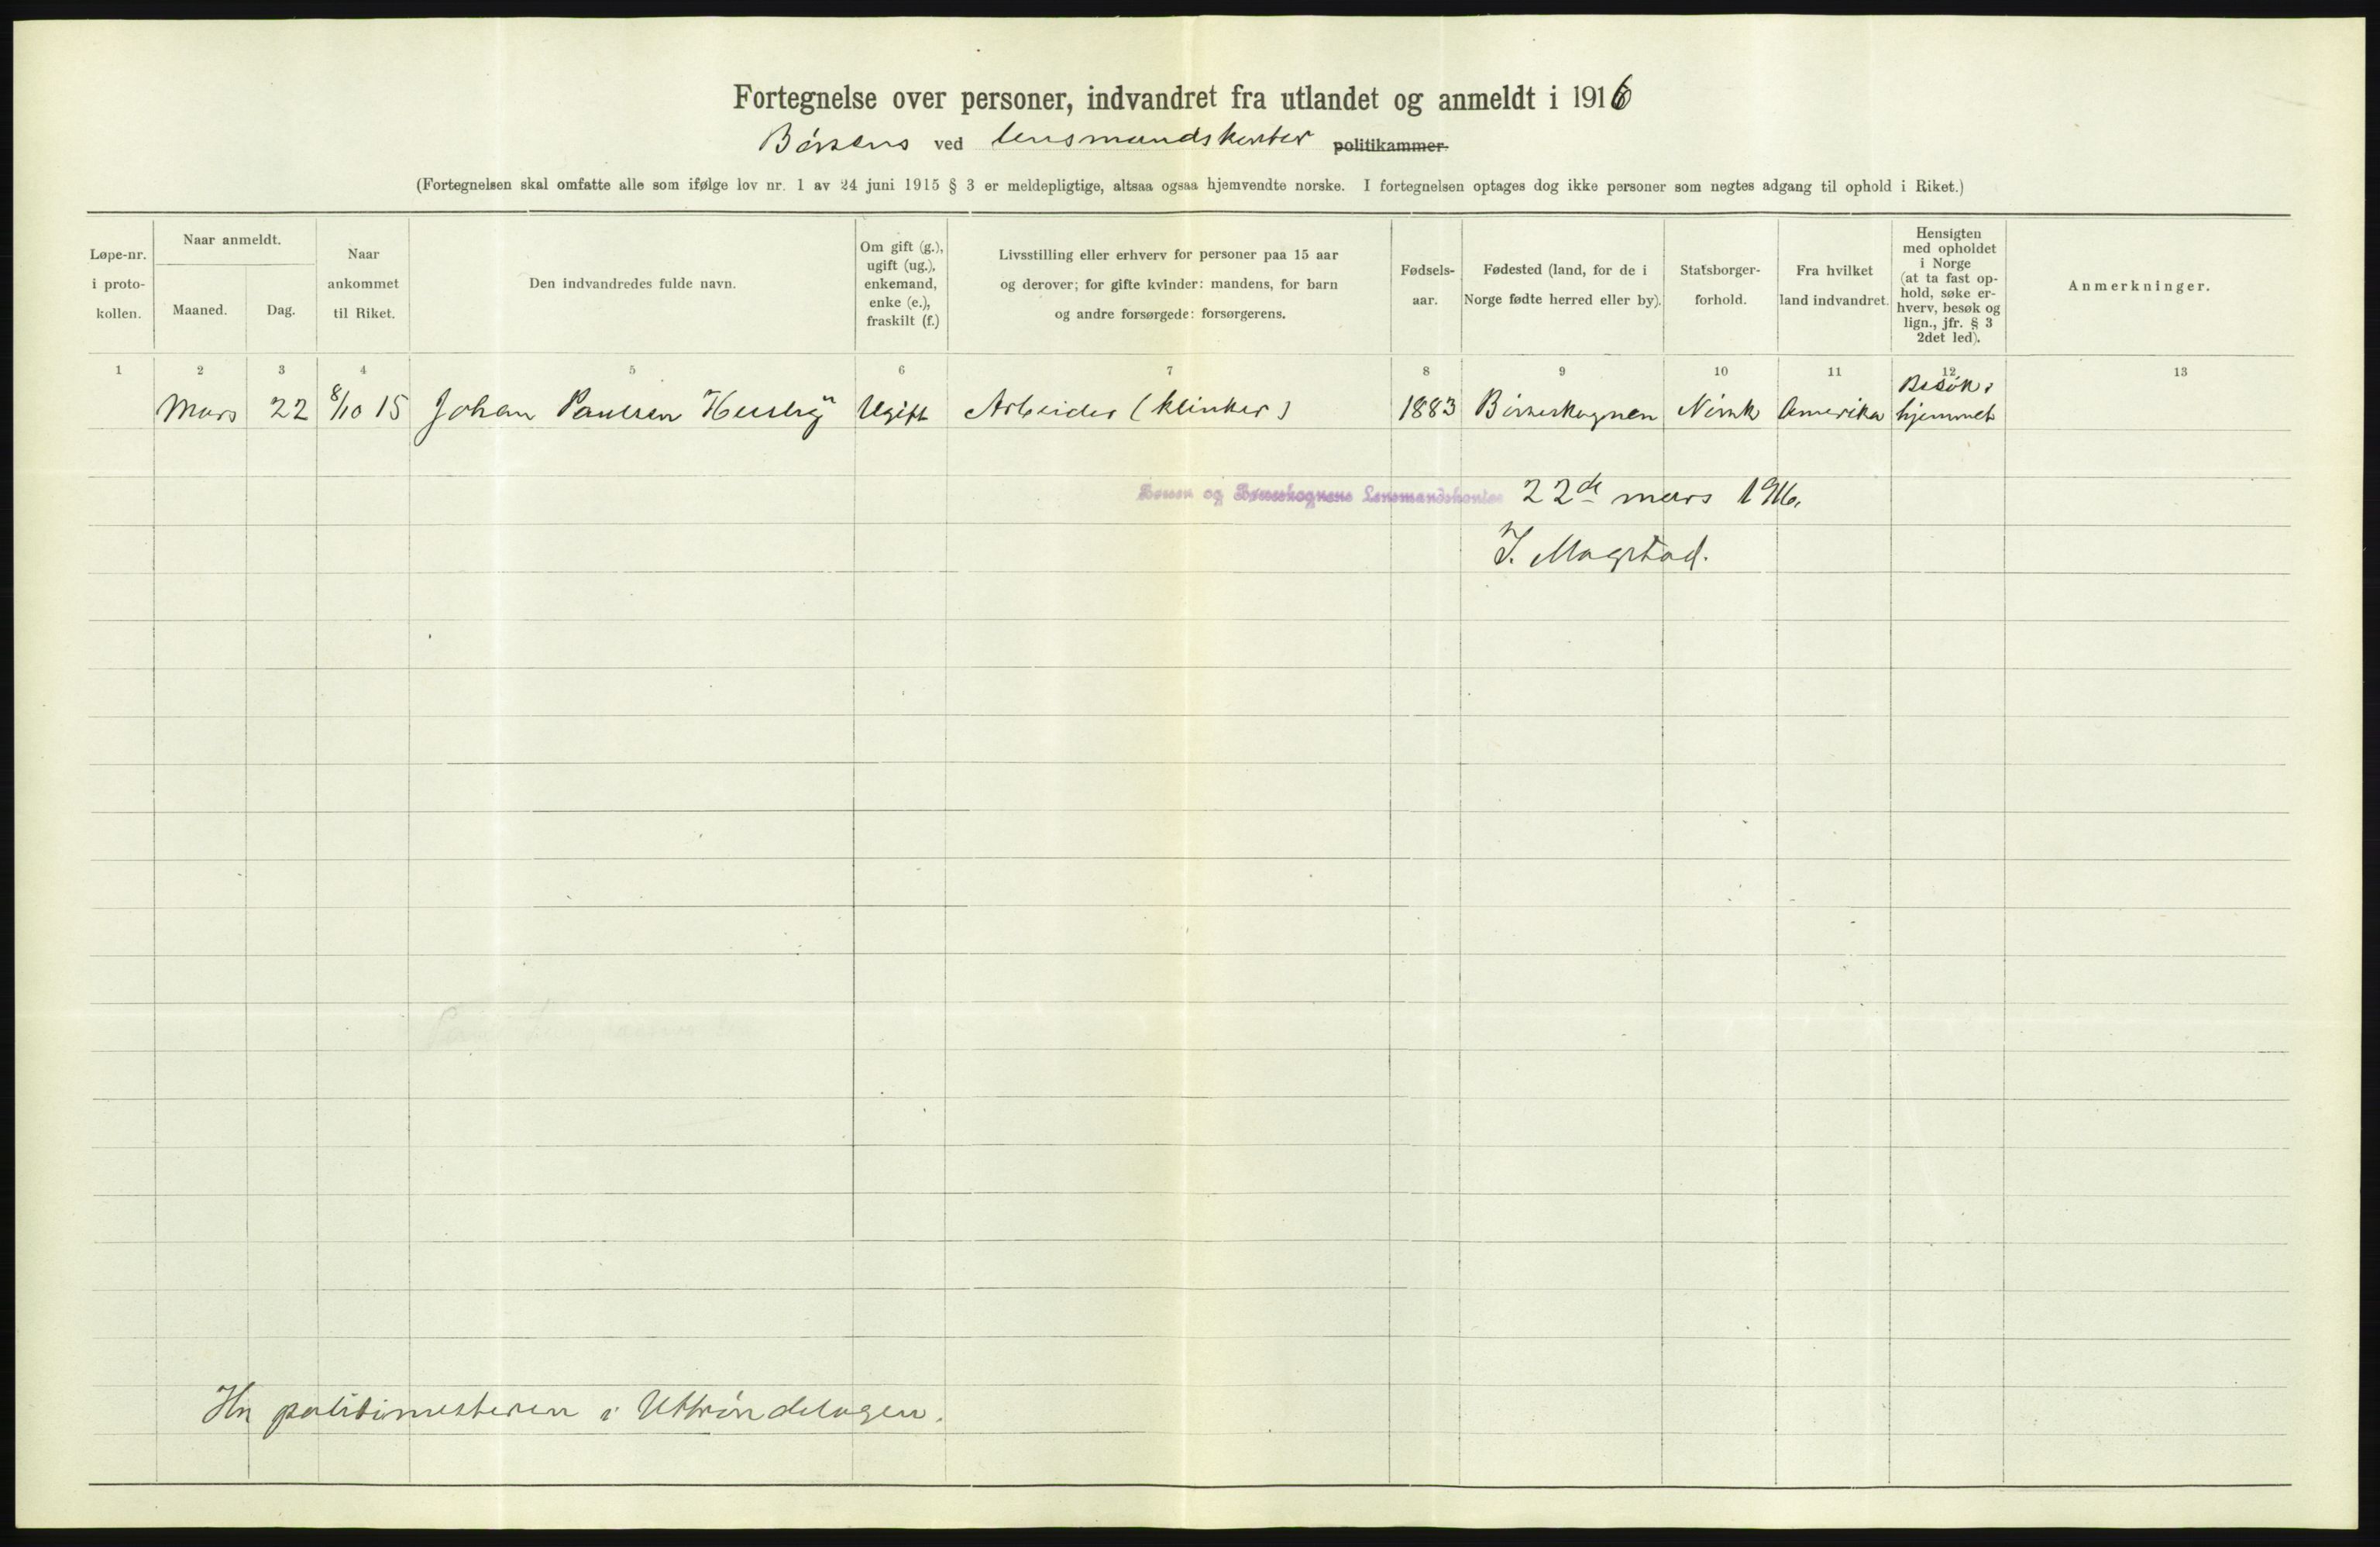 Fortegnelse over personer, indvandret fra utlandet og anmeldt i 1916
Børsens ved lensmandskontor politikammer
(Fortegnelsen skal omfatte alle som ifølge lov nr. 1 av 24 juni 1915 § 3 er meldepligtige, altsaa ogsaa hjemvendte norske. I fortegnelsen optages dog ikke personer som negtes adgang til ophold i Riket.)
Løpe-nr.
i proto-
kollen.
Naar anmeldt.
Maaned.
Dag.
Naar
ankommet
til Riket.
Den indvandredes fulde navn.
Om gift (g.),
ugift (ug.),
enkemand,
enke (e.),
fraskilt (f.)
Livsstilling eller erhverv for personer paa 15 aar
og derover; for gifte kvinder: mandens, for barn
og andre forsørgede: forsørgerens.
Fødsels-
aar.
Fødested (land, for de i
Norge fødte herred eller by).
Statsborger-
forhold.
Fra hvilket
land indvandret.
Hensigten
med opholdet
i Norge
(at ta fast op-
hold, søke er-
hverv, besøk og
lign., jfr. § 3
2det led).
Anmerkninger.
1 2 3 4 5 6 7 8 9 10 11 12 13
Mars 22 8/10 15 Johan Paulsen Ugift Arbeider (klinker) 1883 Børseskognen Norsk Amerika Besøk i
hjemmet
Børsen og Børseskognens Lensmandskontor 22de mars 1916.
J. Magstad.
Hr. politimesteren i Uttrøndelagen.